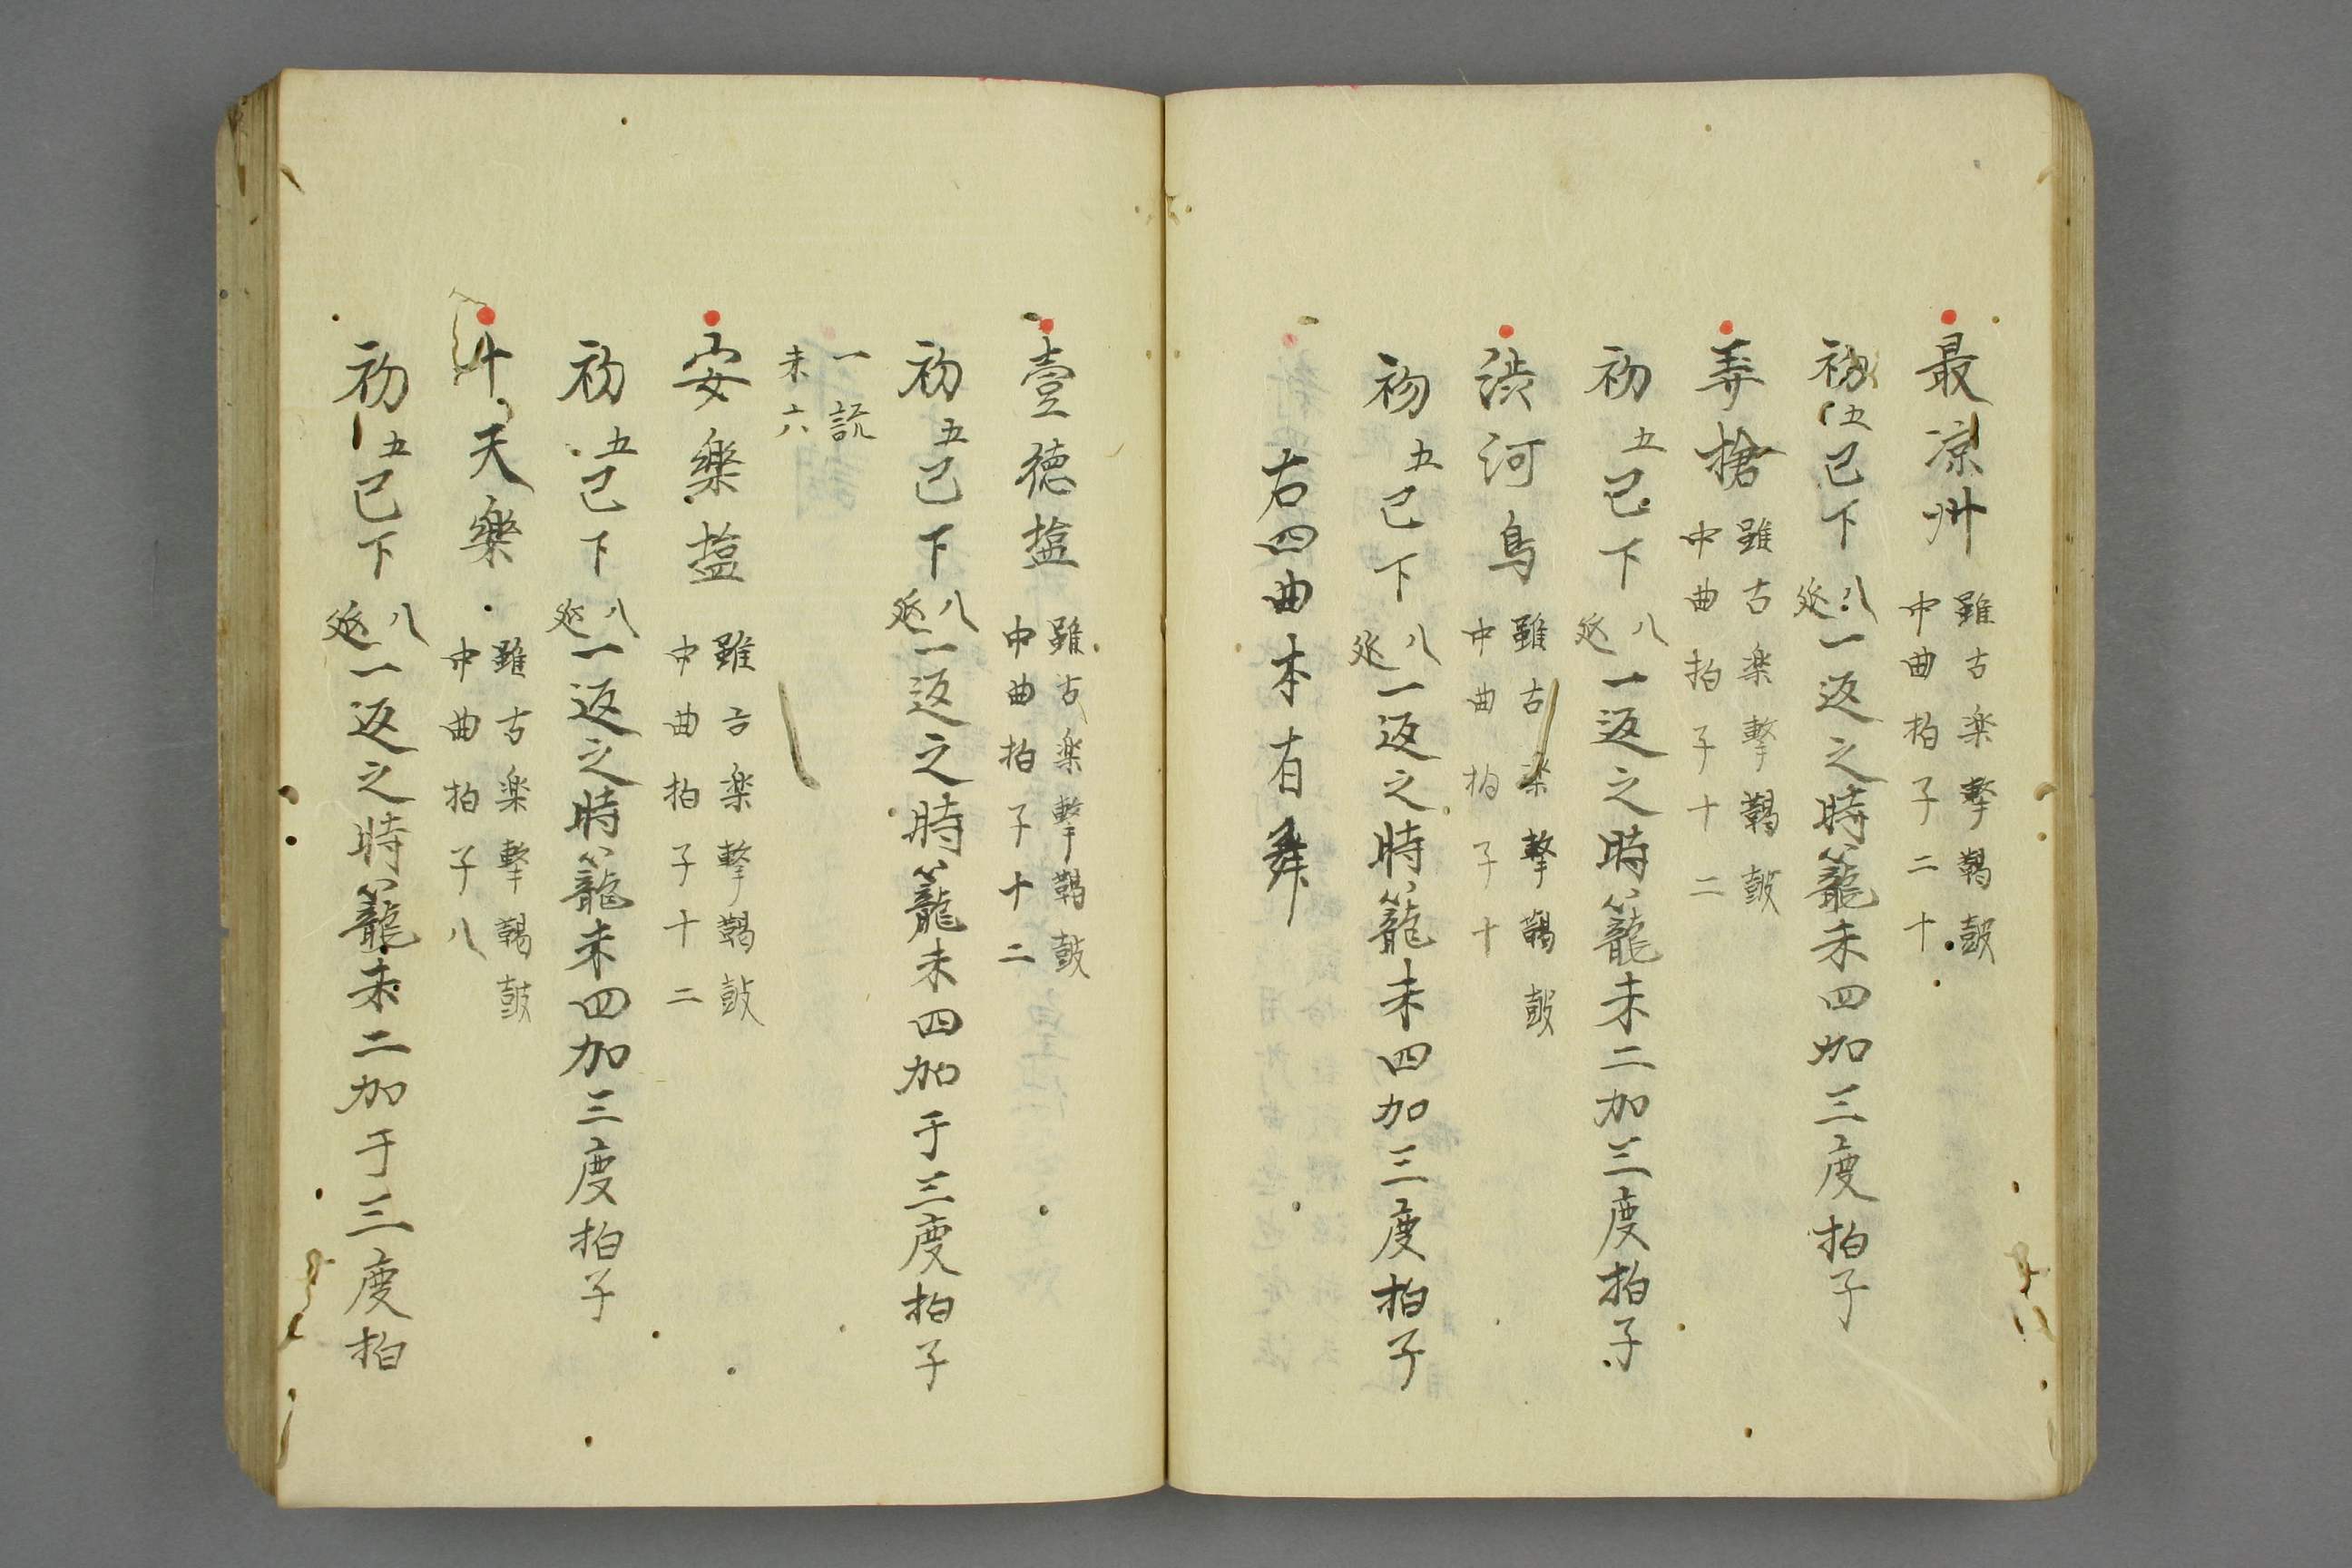 最涼州
雖古楽撃鞨鼓
中曲拍子二十
初五已下八延一返之時篭未四加三度拍子
弄槍
雖古楽撃鞨鼓
中曲拍子十二
初五已下八延一返之時篭未二加三度拍子
渋河鳥
雖古楽撃鞨鼓
中曲拍子十
初五已下八延一返之時篭未四加三度拍子
右四曲本有舞
壹德塩
雖古楽撃鞨鼓
中曲拍子十二
初五已下八延一返之時篭未四加于三度拍子
一説
未六
安樂塩
雖古楽撃鞨鼓
中曲拍子十二
初五已下八延一返之時篭未四加三度拍子
十天樂
雖古楽撃鞨鼓
中曲拍子八
初五已下八延一返之時篭未二加于三度拍